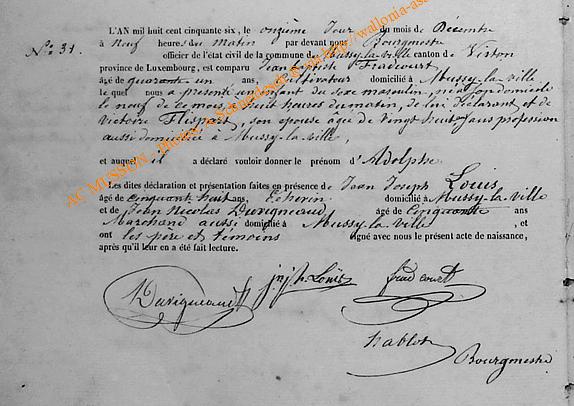 L'AN mil huit cent cinquante six, le onzième Jour du mois de Décembre
N.° 31. à Neuf heures du Matin par devant nous Bourgmestre
officier de l'état civil de la commune de Mussy-la-ville canton de Virton
province de Luxembourg, est comparu Jean Baptiste Frédcourt
âgé de quarante un ans, Cultivateur domicilié à Mussy-la-ville
lequel nous a présenté un enfant du sexe masculin, né à son domicile
le neuf de ce mois, à huit heures du matin, de lui déclarant et de
Victoire, son épouse âgée de vingt neuf ans profession
aussi domiciliée à Mussy-la-ville,
et auquel il a déclaré vouloir donner le prénom d'Adolphe
Les dites déclaration et présentation faites en présence de Jean Joseph Louis
âgé de cinquante huit ans, Echevin domicilié à Mussy-la-ville
et de Jean Nicolas Duvigneaud âgé de Cinquante ans
Marchand aussi domicilié à Mussy-la-ville, et
ont les père et témoins signé avec nous le présent acte de naissance,
après qu'il leur en a été fait lecture.
Duvigneaud j.n j.h Louis
hablot
Bourgmestre
AC MUSSON - Photo